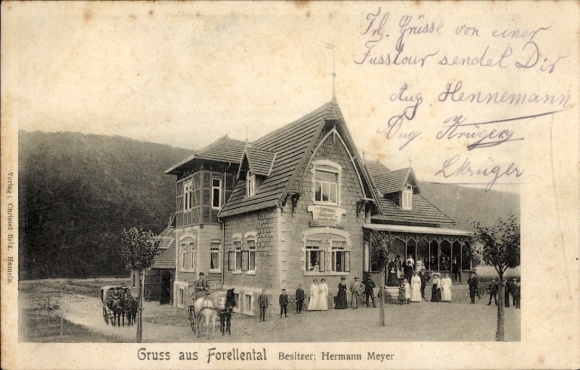 Frl. Grüsse von einer
Fusstour sendet Dir
Aug. Hennemann
Aug. Krüger
L Krüger
Verlag: Christel Brix, Hameln.
Gruss aus Forellental Besitzer: Hermann Meyer